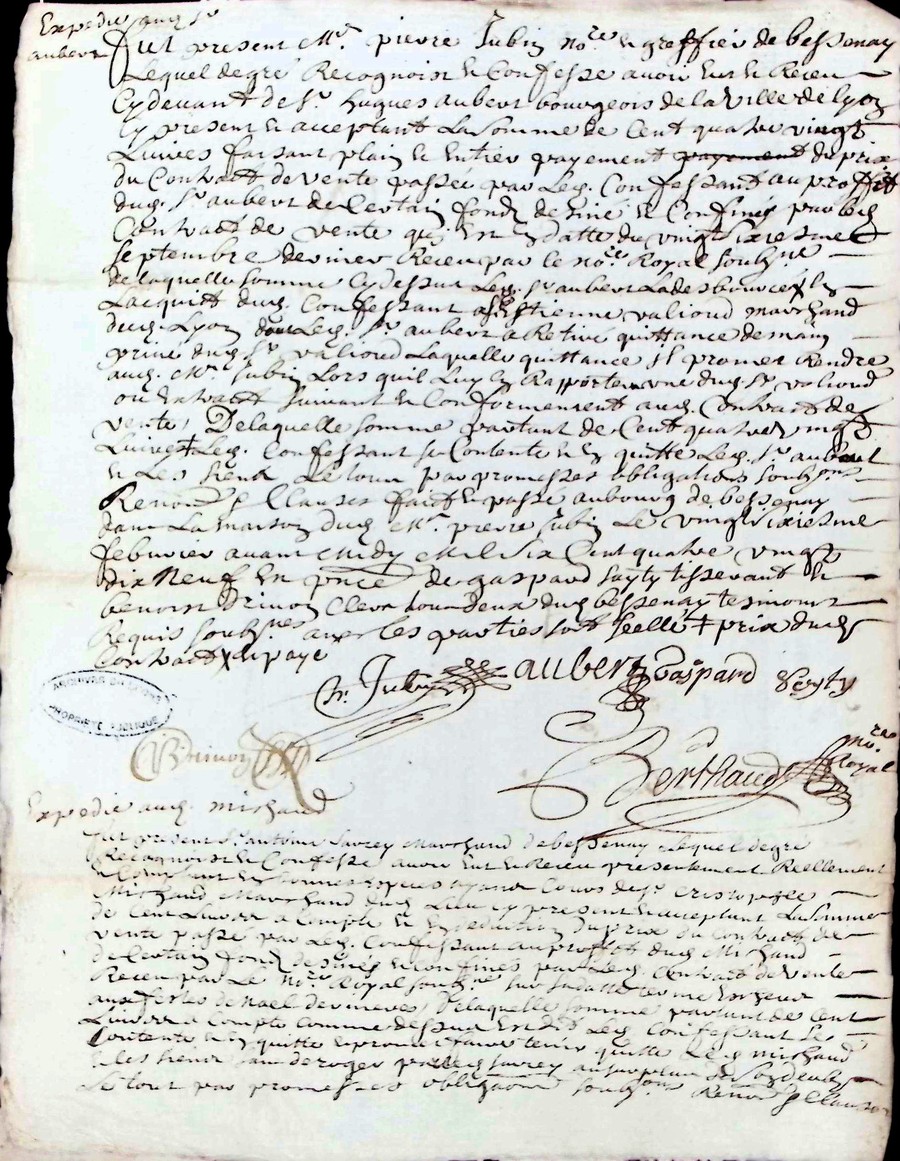 Expedié aud. Sr
aubert
Fut present Me. pierre Jubin nore. & greffier de bessenay
Lequel de gré Recognoist & Confesse avoir Eut & Receu
Cydevant de Sr. hugues aubert bourgeois de la Ville de lyon
Cy present & acceptant La Somme de Cent quatre vingt
Luivres faisant plain & Entier payement payement du prix
du Contract de Vente passée par Led. Confessant au proffict
dud. Sr. aubert de Certain fond designé & Confiné par led
Contract de vente qui Est en datte du vingt sixiesme
septembre dernier Receu par le nore. Royal soubzne.
de laquelle somme Cydessus Led. Sr. aubert La desboursée
Lacquict dud. Confessant a Sr Estienne valioud marchand
dud. Lyon dont Led. Sr. aubert a Retiré quittance de main
privé dud. Sr. valioud Laquelle quittance Il promet Rendre
aud. Me. Jubin Lors quil Luy Rapportera une dud. Sr. valioud
ou Extraict suivant & Conformement aud. Contract de
vente, De laquelle somme partant de Cent quatre vingt
Luivres Led. Confessant se Contente & en quitte Led. Sr. aubert
& Les siens Le tout par promesses obligations soubzons
Renonons & Clauses faict & passé au bourg de bessenay
dans La maison dud. Me. pierre Jubin Le vingt sixiesme
febvrier avant Midy Mil Six Cent quatre vingt
dix Neuf En pnce de gaspard Sayty tisserant &
benoist brinon Clerc tous deux dud bessenay tesmoins
Requis soubznes. avec les parties soit scellé + prix dud
Contract payé
Jubin aubert Gaspard Seyty
Brinon Berthaud nore Royal
Expedié aud. michaud
Fut present Sr. antoine Savrey Marchand de bessenay Lequel de gré
Recognoist & Confesse avoir Eut & Receu presentement Reellement
& Comptant En bonnes especes ayant Cours de Sr. Cristophle
Michaud Marchand dud. Lieu cy present & acceptant La Somme
de Cent Livres a Compte & En deduction du prix du Contract de
vente passé par Led. Confessant au proffit dud. Michaud
de Certain fond designés & Confinés par Led. Contract de Vente
Receu par Le nore. Royal soubzne. sur sa datte terme Escheu
aux festes de Noel dernieres, De laquelle somme partant de Cent
Livres a Compte Comme dessus Led. Confessant se
Contente & en quitte & promet faire tenir quitte Led. michaud
& les siens
Le tout par promesses obligaons soubzons Renonons & Clauses
ARCHIVES DU RHONE
PROPRIETE PUBLIQUE